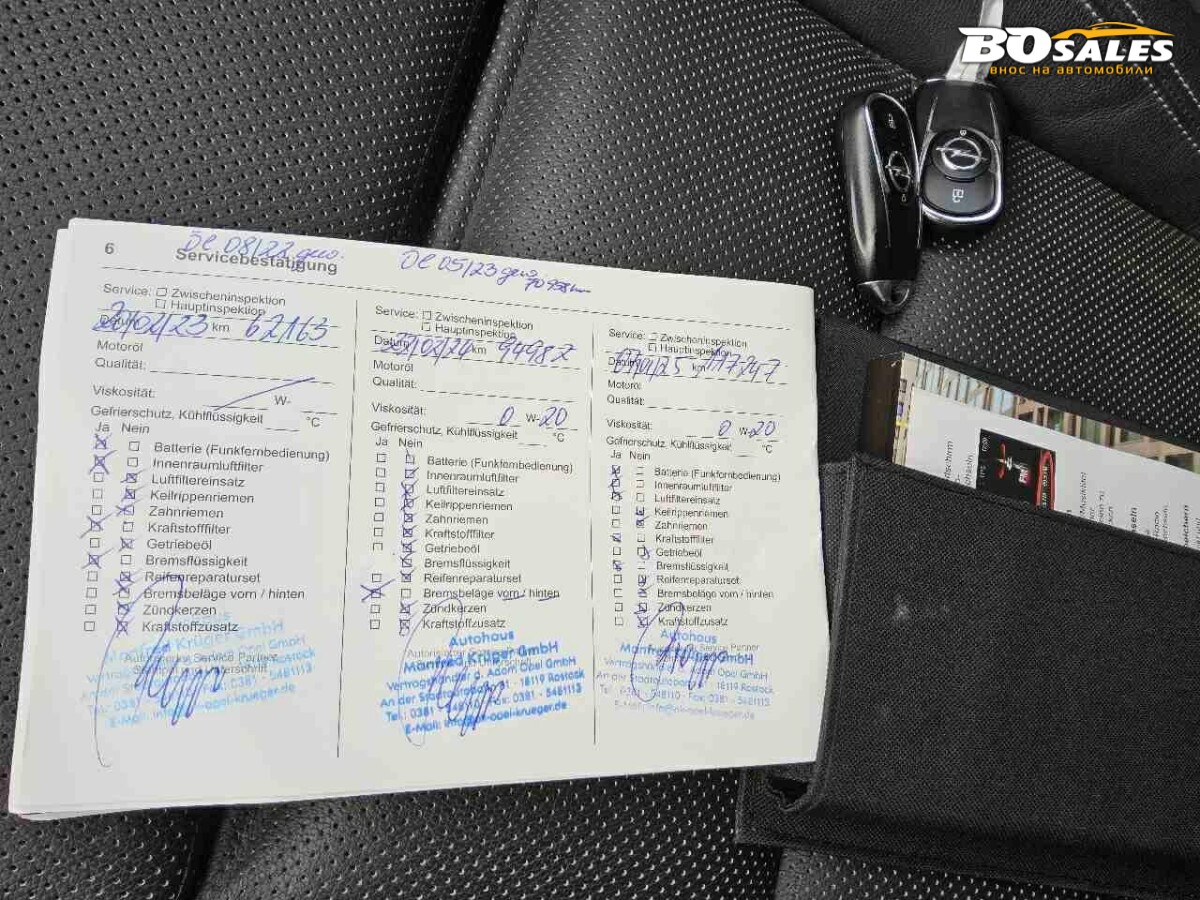 BOSALES
внос на автомобили
6
Servicebestätigung
08/22
05/23
Service: Zwischeninspektion
Hauptinspektion
/02/23 km 62163
Motoröl
Qualität:
Viskosität: W-
Gefrierschutz, Kühlflüssigkeit °C
Ja Nein
Batterie (Funkfernbedienung)
Innenraumluftfilter
Luftfiltereinsatz
Keilrippenriemen
Zahnriemen
Kraftstofffilter
Getriebeöl
Bremsflüssigkeit
Reifenreparaturset
Bremsbeläge vorn / hinten
Zündkerzen
Kraftstoffzusatz
Manfred Krüger GmbH
Service Partner
Service: Zwischeninspektion
Hauptinspektion
Datum /02/24 km 94987
Motoröl
Qualität:
Viskosität: 0 W-20
Gefrierschutz, Kühlflüssigkeit °C
Ja Nein
Batterie (Funkfernbedienung)
Innenraumluftfilter
Luftfiltereinsatz
Keilrippenriemen
Zahnriemen
Kraftstofffilter
Getriebeöl
Bremsflüssigkeit
Reifenreparaturset
Bremsbeläge vorn / hinten
Zündkerzen
Kraftstoffzusatz
Autohaus
Manfred Krüger GmbH
Vertragshändler d. Adam Opel GmbH
18119 Rostock
Fax: 0381 - 5481113
Service: Zwischeninspektion
Hauptinspektion
km 117247
Motoröl
Qualität:
Viskosität: 0 W-20
Gefrierschutz, Kühlflüssigkeit °C
Ja Nein
Batterie (Funkfernbedienung)
Innenraumluftfilter
Luftfiltereinsatz
Keilrippenriemen
Zahnriemen
Kraftstofffilter
Getriebeöl
Bremsflüssigkeit
Reifenreparaturset
Bremsbeläge vorn / hinten
Zündkerzen
Kraftstoffzusatz
Autohaus
Opel GmbH
18119 Rostock
Tel.: 0381 - 548110 Fax: 0381 - 5481113
FM